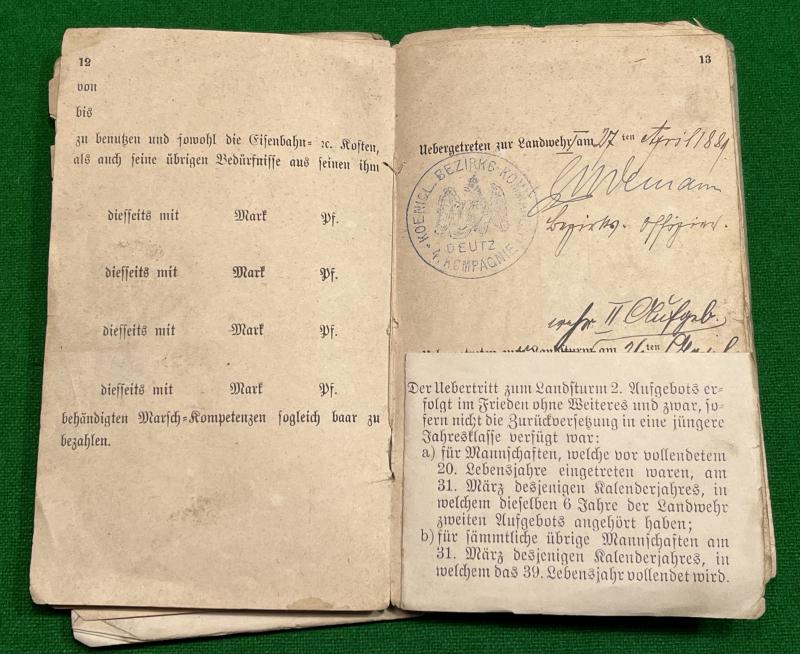 12
von
bis
zu benutzen und sowohl die Eisenbahn- ꝛc. Kosten,
als auch seine übrigen Bedürfnisse aus seinen ihm
diesseits mit Mark Pf.
diesseits mit Mark Pf.
diesseits mit Mark Pf.
diesseits mit Mark Pf.
behändigten Marsch-Kompetenzen sogleich baar zu
bezahlen.
13
Uebergetreten zur Landwehr I am 27 ten April 1881.
KOENIGL. BEZIRKS-KOM
DEUTZ
4. KOMPAGNIE
Bezirks-Offizier.
wehr II Aufgeb.
Landsturm am 26 ten
Der Uebertritt zum Landsturm 2. Aufgebots er-
folgt im Frieden ohne Weiteres und zwar, so-
fern nicht die Zurückversetzung in eine jüngere
Jahresklasse verfügt war:
a) für Mannschaften, welche vor vollendetem
20. Lebensjahre eingetreten waren, am
31. März desjenigen Kalenderjahres, in
welchem dieselben 6 Jahre der Landwehr
zweiten Aufgebots angehört haben;
b) für sämmtliche übrige Mannschaften am
31. März desjenigen Kalenderjahres, in
welchem das 39. Lebensjahr vollendet wird.